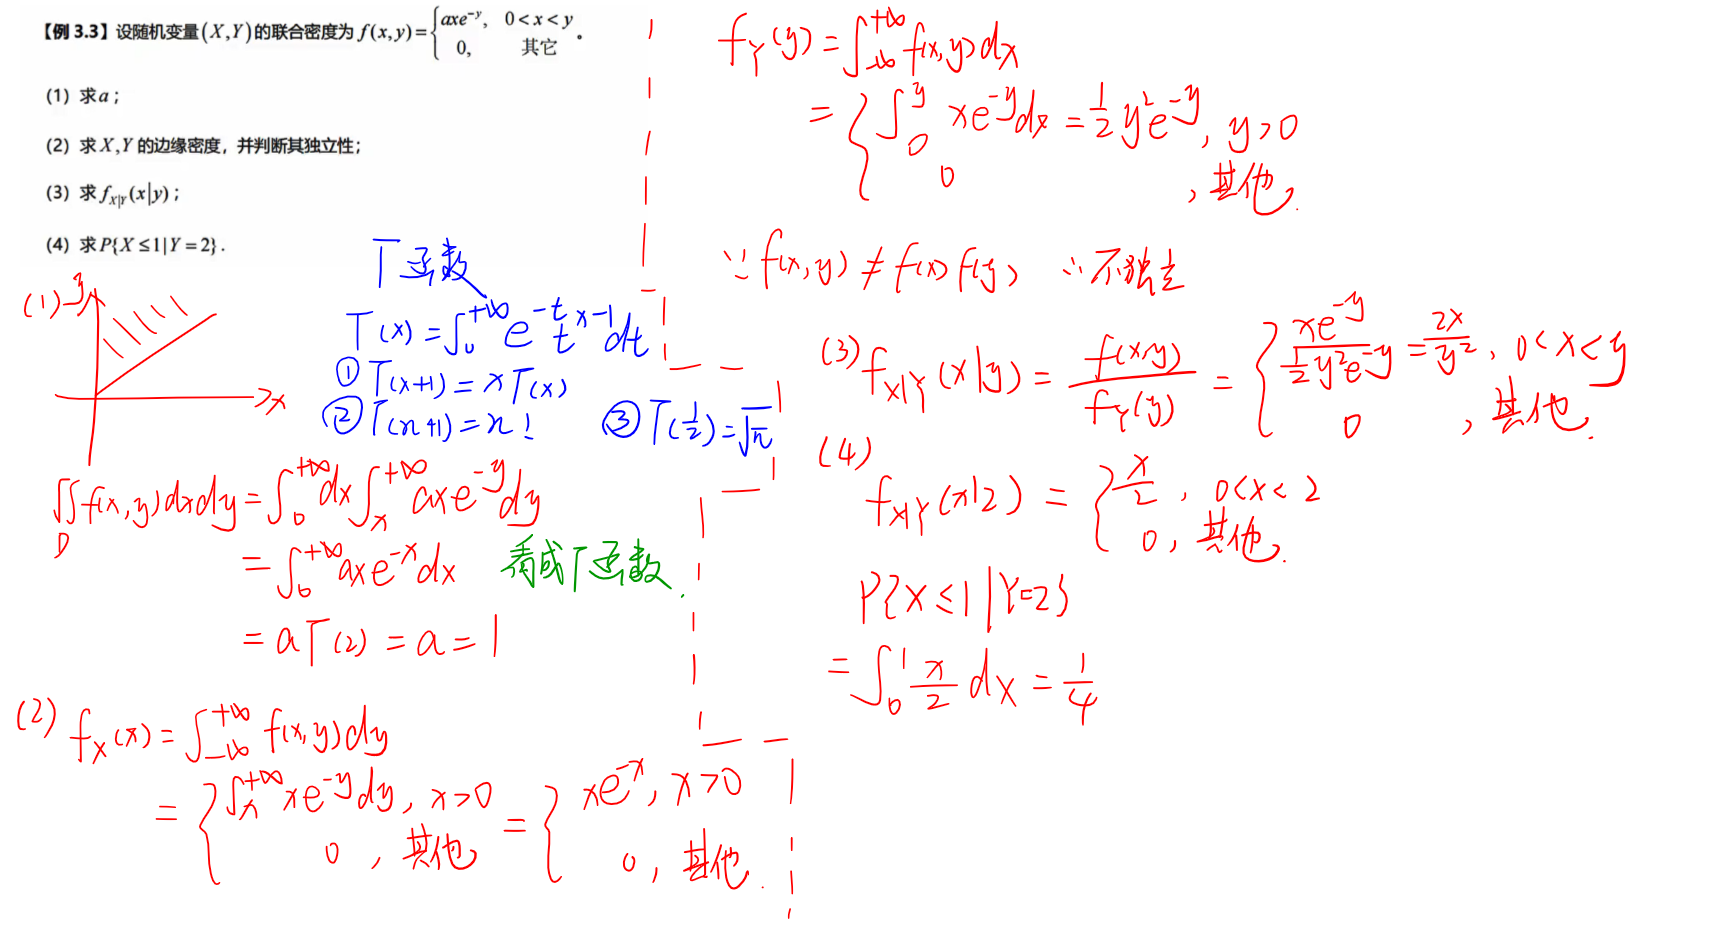 【例 3.3】设随机变量(X,Y)的联合密度为 f(x,y)={axe^{-y}, 0<x<y
0, 其它 .
(1) 求a;
(2) 求X,Y的边缘密度，并判断其独立性;
(3) 求f_{X|Y}(x|y);
(4) 求P{X≤1|Y=2}.
Γ函数
Γ(x)=∫_0^{+∞} e^{-t} t^{x-1} dt
① Γ(x+1)=xΓ(x)
② Γ(n+1)=n! ③ Γ(1/2)=√π
(1) y
x
∬_D f(x,y)dxdy=∫_0^{+∞}dx∫_x^{+∞}axe^{-y}dy
=∫_0^{+∞}axe^{-x}dx 看成Γ函数.
=aΓ(2)=a=1
(2) f_X(x)=∫_{-∞}^{+∞}f(x,y)dy
={∫_x^{+∞}xe^{-y}dy, x>0 ={xe^{-x}, x>0
0, 其他 0, 其他.
f_Y(y)=∫_{-∞}^{+∞}f(x,y)dx
={∫_0^y xe^{-y}dx=1/2 y²e^{-y}, y>0
0 , 其他.
∵f(x,y)≠f(x)f(y) ∴不独立
(3) f_{X|Y}(x|y)=f(x,y)/f_Y(y)={xe^{-y}/(1/2 y²e^{-y})=2x/y², 0<x<y
0 , 其他.
(4)
f_{X|Y}(x|2)={x/2, 0<x<2
0, 其他.
P{X≤1|Y=2}
=∫_0^1 x/2 dx=1/4